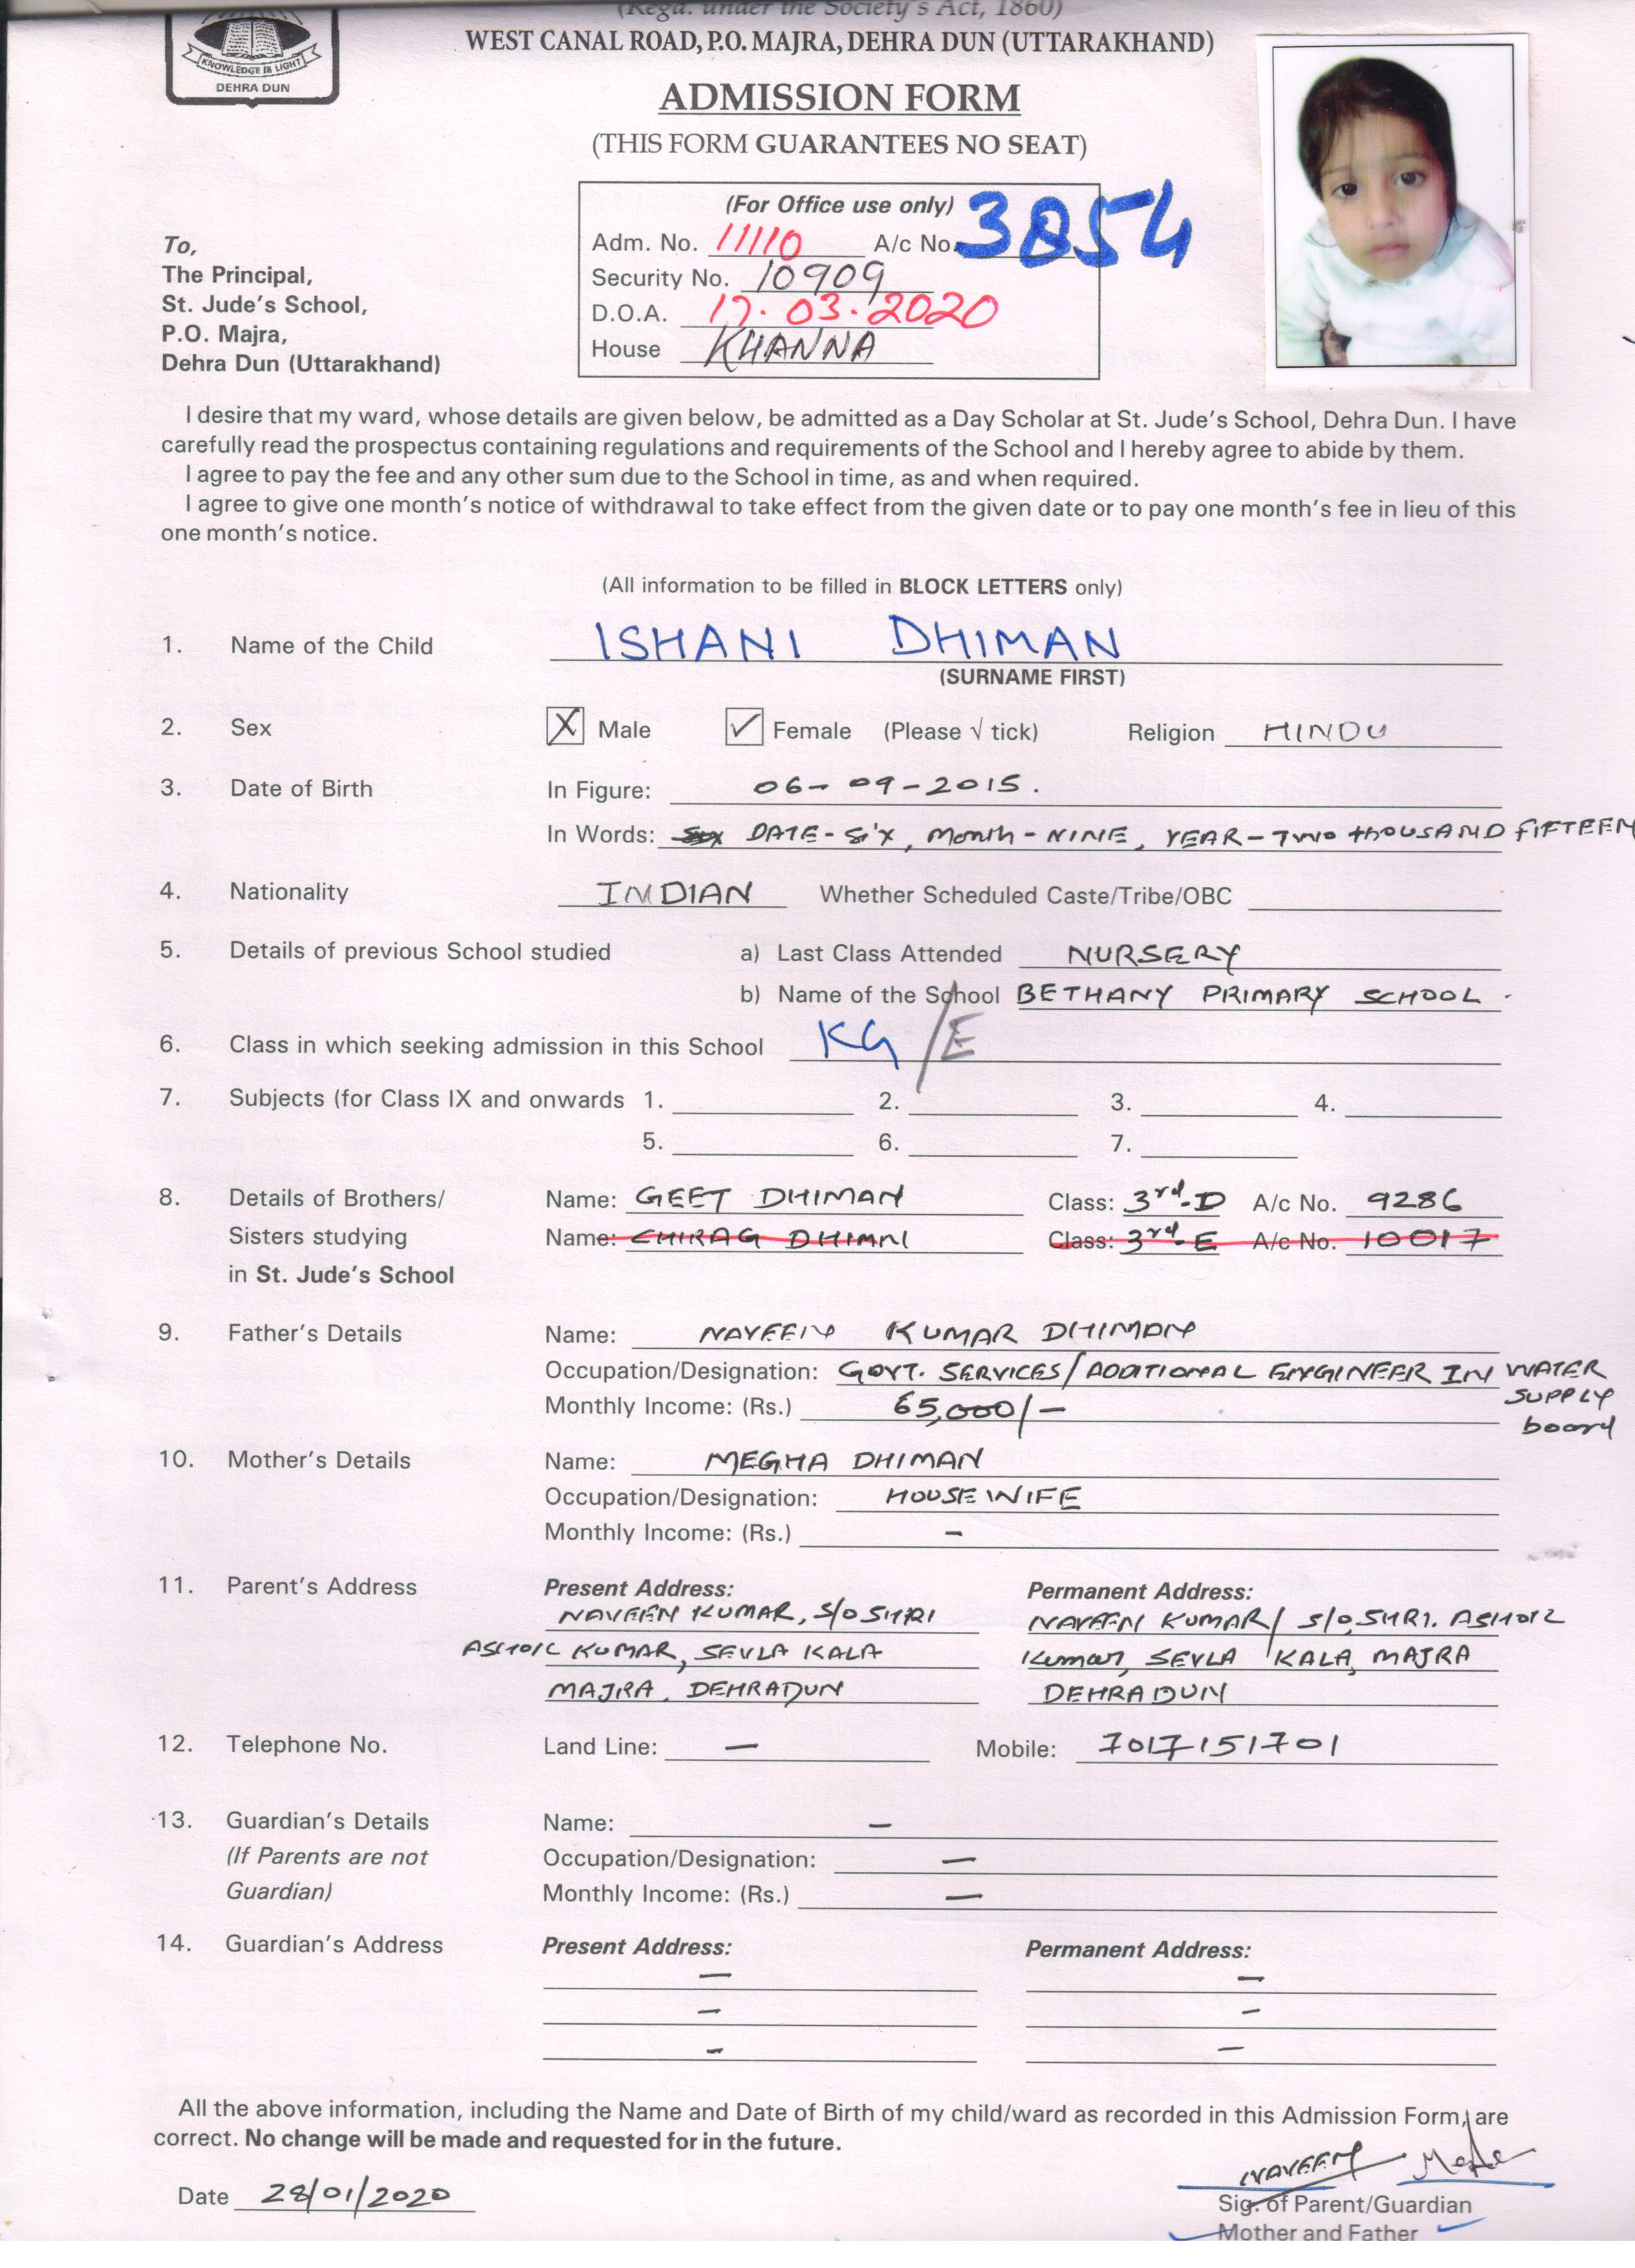 (Regd. under the Society's Act, 1860)
WEST CANAL ROAD, P.O. MAJRA, DEHRA DUN (UTTARAKHAND)
KNOWLEDGE IS LIGHT
DEHRA DUN
ADMISSION FORM
(THIS FORM GUARANTEES NO SEAT)
(For Office use only)
Adm. No. 11110 A/c No. 3854
Security No. 10909
D.O.A. 17.03.2020
House KHANNA
To,
The Principal,
St. Jude's School,
P.O. Majra,
Dehra Dun (Uttarakhand)
I desire that my ward, whose details are given below, be admitted as a Day Scholar at St. Jude's School, Dehra Dun. I have
carefully read the prospectus containing regulations and requirements of the School and I hereby agree to abide by them.
I agree to pay the fee and any other sum due to the School in time, as and when required.
I agree to give one month's notice of withdrawal to take effect from the given date or to pay one month's fee in lieu of this
one month's notice.
(All information to be filled in BLOCK LETTERS only)
1. Name of the Child ISHANI DHIMAN
(SURNAME FIRST)
2. Sex X Male ✓ Female (Please √ tick) Religion HINDU
3. Date of Birth In Figure: 06-09-2015.
In Words: DATE-SIX, Month-NINE, YEAR-TWO thOUSAND FIFTEEN
4. Nationality INDIAN Whether Scheduled Caste/Tribe/OBC
5. Details of previous School studied a) Last Class Attended NURSERY
b) Name of the School BETHANY PRIMARY SCHOOL.
6. Class in which seeking admission in this School KG/E
7. Subjects (for Class IX and onwards 1. 2. 3. 4.
5. 6. 7.
8. Details of Brothers/ Name: GEET DHIMAN Class: 3rd-D A/c No. 9286
Sisters studying Name: CHIRAG DHIMNI Class: 3rd-E A/c No. 10017
in St. Jude's School
9. Father's Details Name: NAVEEN KUMAR DHIMAN
Occupation/Designation: GOVT. SERVICES/ADDITIONAL ENGINEER IN WATER
SUPPLY
board
Monthly Income: (Rs.) 65,000/-
10. Mother's Details Name: MEGHA DHIMAN
Occupation/Designation: HOUSEWIFE
Monthly Income: (Rs.) -
11. Parent's Address Present Address: Permanent Address:
NAVEEN KUMAR, S/O SHRI NAVEEN KUMAR/ S/O, SHRI. ASHOK
ASHOK KUMAR, SEVLA KALA Kumar, SEVLA KALA, MAJRA
MAJRA, DEHRADUN DEHRADUN
12. Telephone No. Land Line: - Mobile: 7017151701
13. Guardian's Details Name: -
(If Parents are not Occupation/Designation: -
Guardian) Monthly Income: (Rs.) -
14. Guardian's Address Present Address: Permanent Address:
- -
- -
- -
All the above information, including the Name and Date of Birth of my child/ward as recorded in this Admission Form, are
correct. No change will be made and requested for in the future.
NAVEEN
Date 28/01/2020
Sig. of Parent/Guardian
Mother and Father